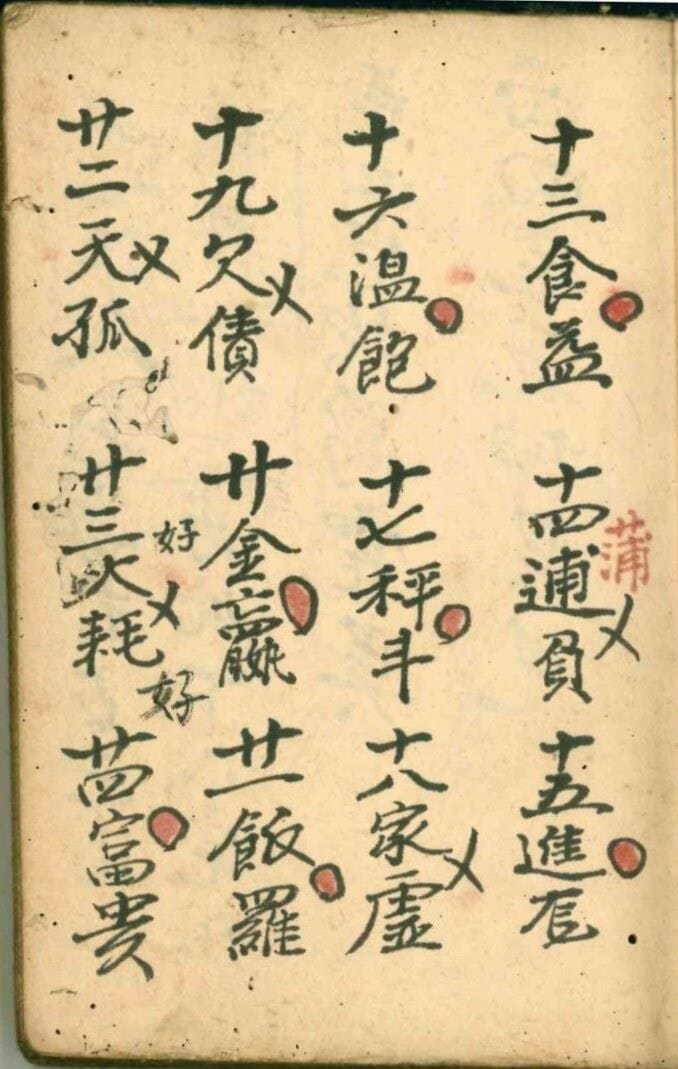 十三食益 十四逋負 十五進
蒲
十六温飽 十七秤斗 十八家虛
十九欠債 廿金嬴 廿一飯羅
好
好
廿二天孤 廿三火耗 廿四富貴